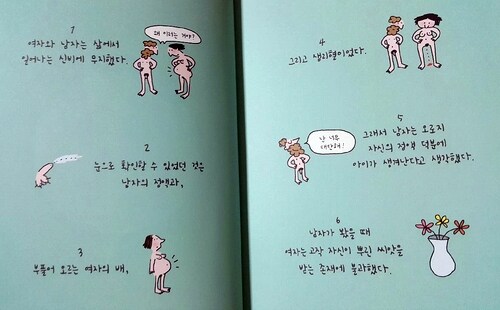 1
여자와 남자는 삶에서
일어나는 신비에 무지했다.
왜 이러는 거야?
2
눈으로 확인할 수 있었던 것은
남자의 정액과,
3
부풀어 오르는 여자의 배,
4
그리고 생리혈이었다.
5
그래서 남자는 오로지
자신의 정액 덕분에
아이가 생겨난다고 생각했다.
난 너무
대단해!
6
남자가 봤을 때
여자는 고작 자신이 뿌린 씨앗을
받는 존재에 불과했다.